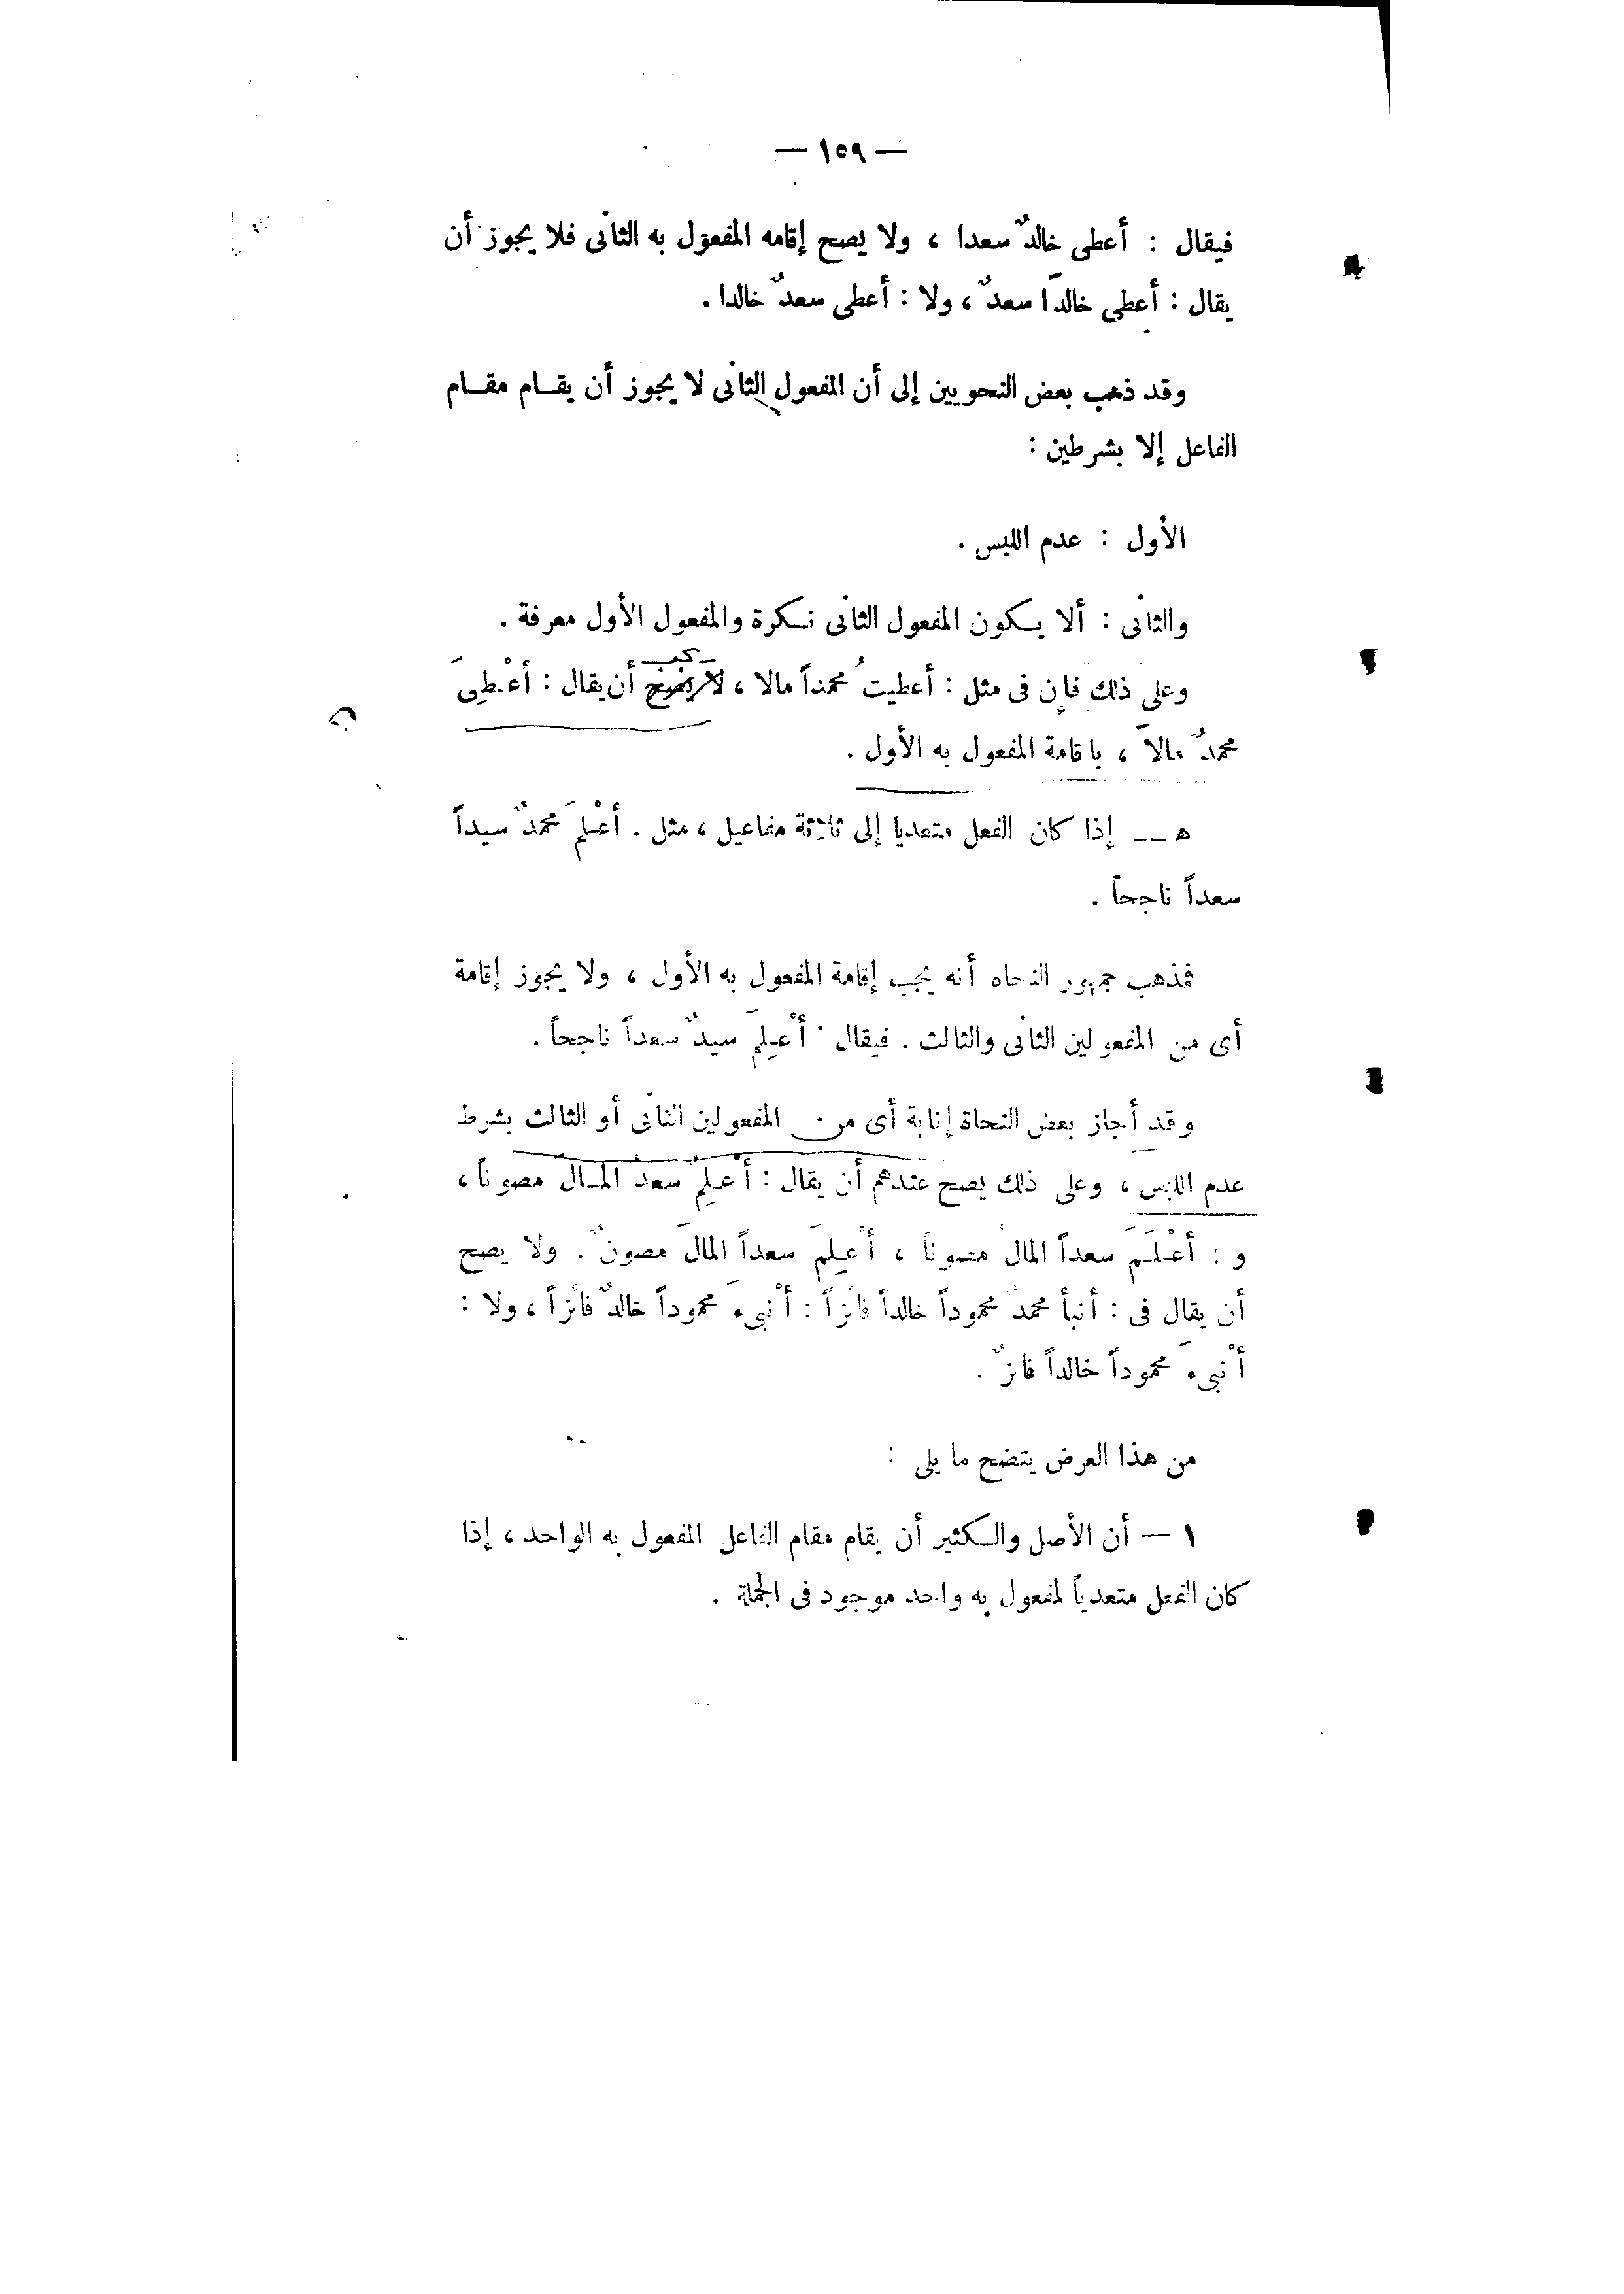 — ١٥٩ —
فيقال : أعطى خالدٌ سعدا ، ولا يصح إقامه المفعول به الثانى فلا يجوز أن
يقال : أعطى خالداً سعدٌ ، ولا : أعطى سعدٌ خالدا .
وقد ذهب بعض النحويين إلى أن المفعول الثانى لا يجوز أن يقـام مقـام
الفاعل إلا بشرطين :
الأول : عدم اللبس .
والثانى : ألا يـكون المفعول الثانى نـكرة والمفعول الأول معرفة .
وعلى ذلك فإن فى مثل : أعطيتُ محمداً مالا ، أن يقال : أعْـطِىَ
محمدٌ مالاً ، باقامة المفعول به الأول .
ه — إذا كان الفعل متعديا إلى ثلاثة مفاعيل ، مثل . أعْـلمَ محمدٌ سيداً
سعداً ناجحاً .
فمذهب جمهور النحاه أنه يجب إقامة المفعول به الأول ، ولا يجوز إقامة
أى من المفعولين الثانى والثالث . فيقال : أعْـلِمَ سيدٌ سعداً ناجحاً .
وقد أجاز بعض النحاة إنابة أى من المفعولين الثانى أو الثالث بشرط
عدم اللبس ، وعلى ذلك يصح عندهم أن يقال : أعـلِمَ سعدٌ المـالَ مصوناً ،
و : أعْـلَـمَ سعداً المالُ مصوناً ، أعْـلِمَ سعداً المالَ مصونٌ . ولا يصح
أن يقال فى : أنبأ محمدٌ محموداً خالداً فائزاً : أنْبىءَ محموداً خالدٌ فائزاً ، ولا :
أنْبىءَ محموداً خالداً فائزٌ .
من هذا العرض يتضح ما يلى :
١ — أن الأصل والـكثير أن يقام مقام الفاعل المفعول به الواحد ، إذا
كان الفعل متعدياً لمفعول به واحد موجود فى الجملة .